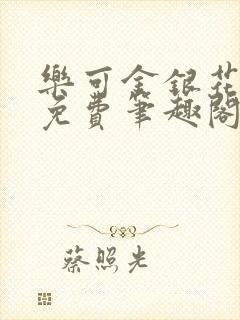 樂可金銀花
免費筆趣閣
蔡照光